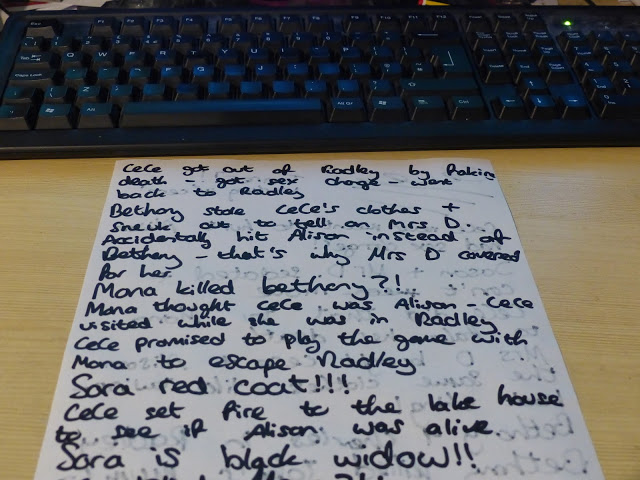 Cece got out of Radley by Faking
death - got sex change - went
back to Radley
Bethany stole Cece's clothes +
Sneak out to tell on Mrs D.
Accidentally hit Alison instead of
Bethany - that's why Mrs D covered
for her
Mona killed bethany?!..
Mona thought Cece was Alison - Cece
visited while she was in Radley
Cece promised to play the game with
Mona to escape Radley
Sara red coat!!!
Cece set fire to the lake house
to see if Alison was alive.
Sara is black widow!!